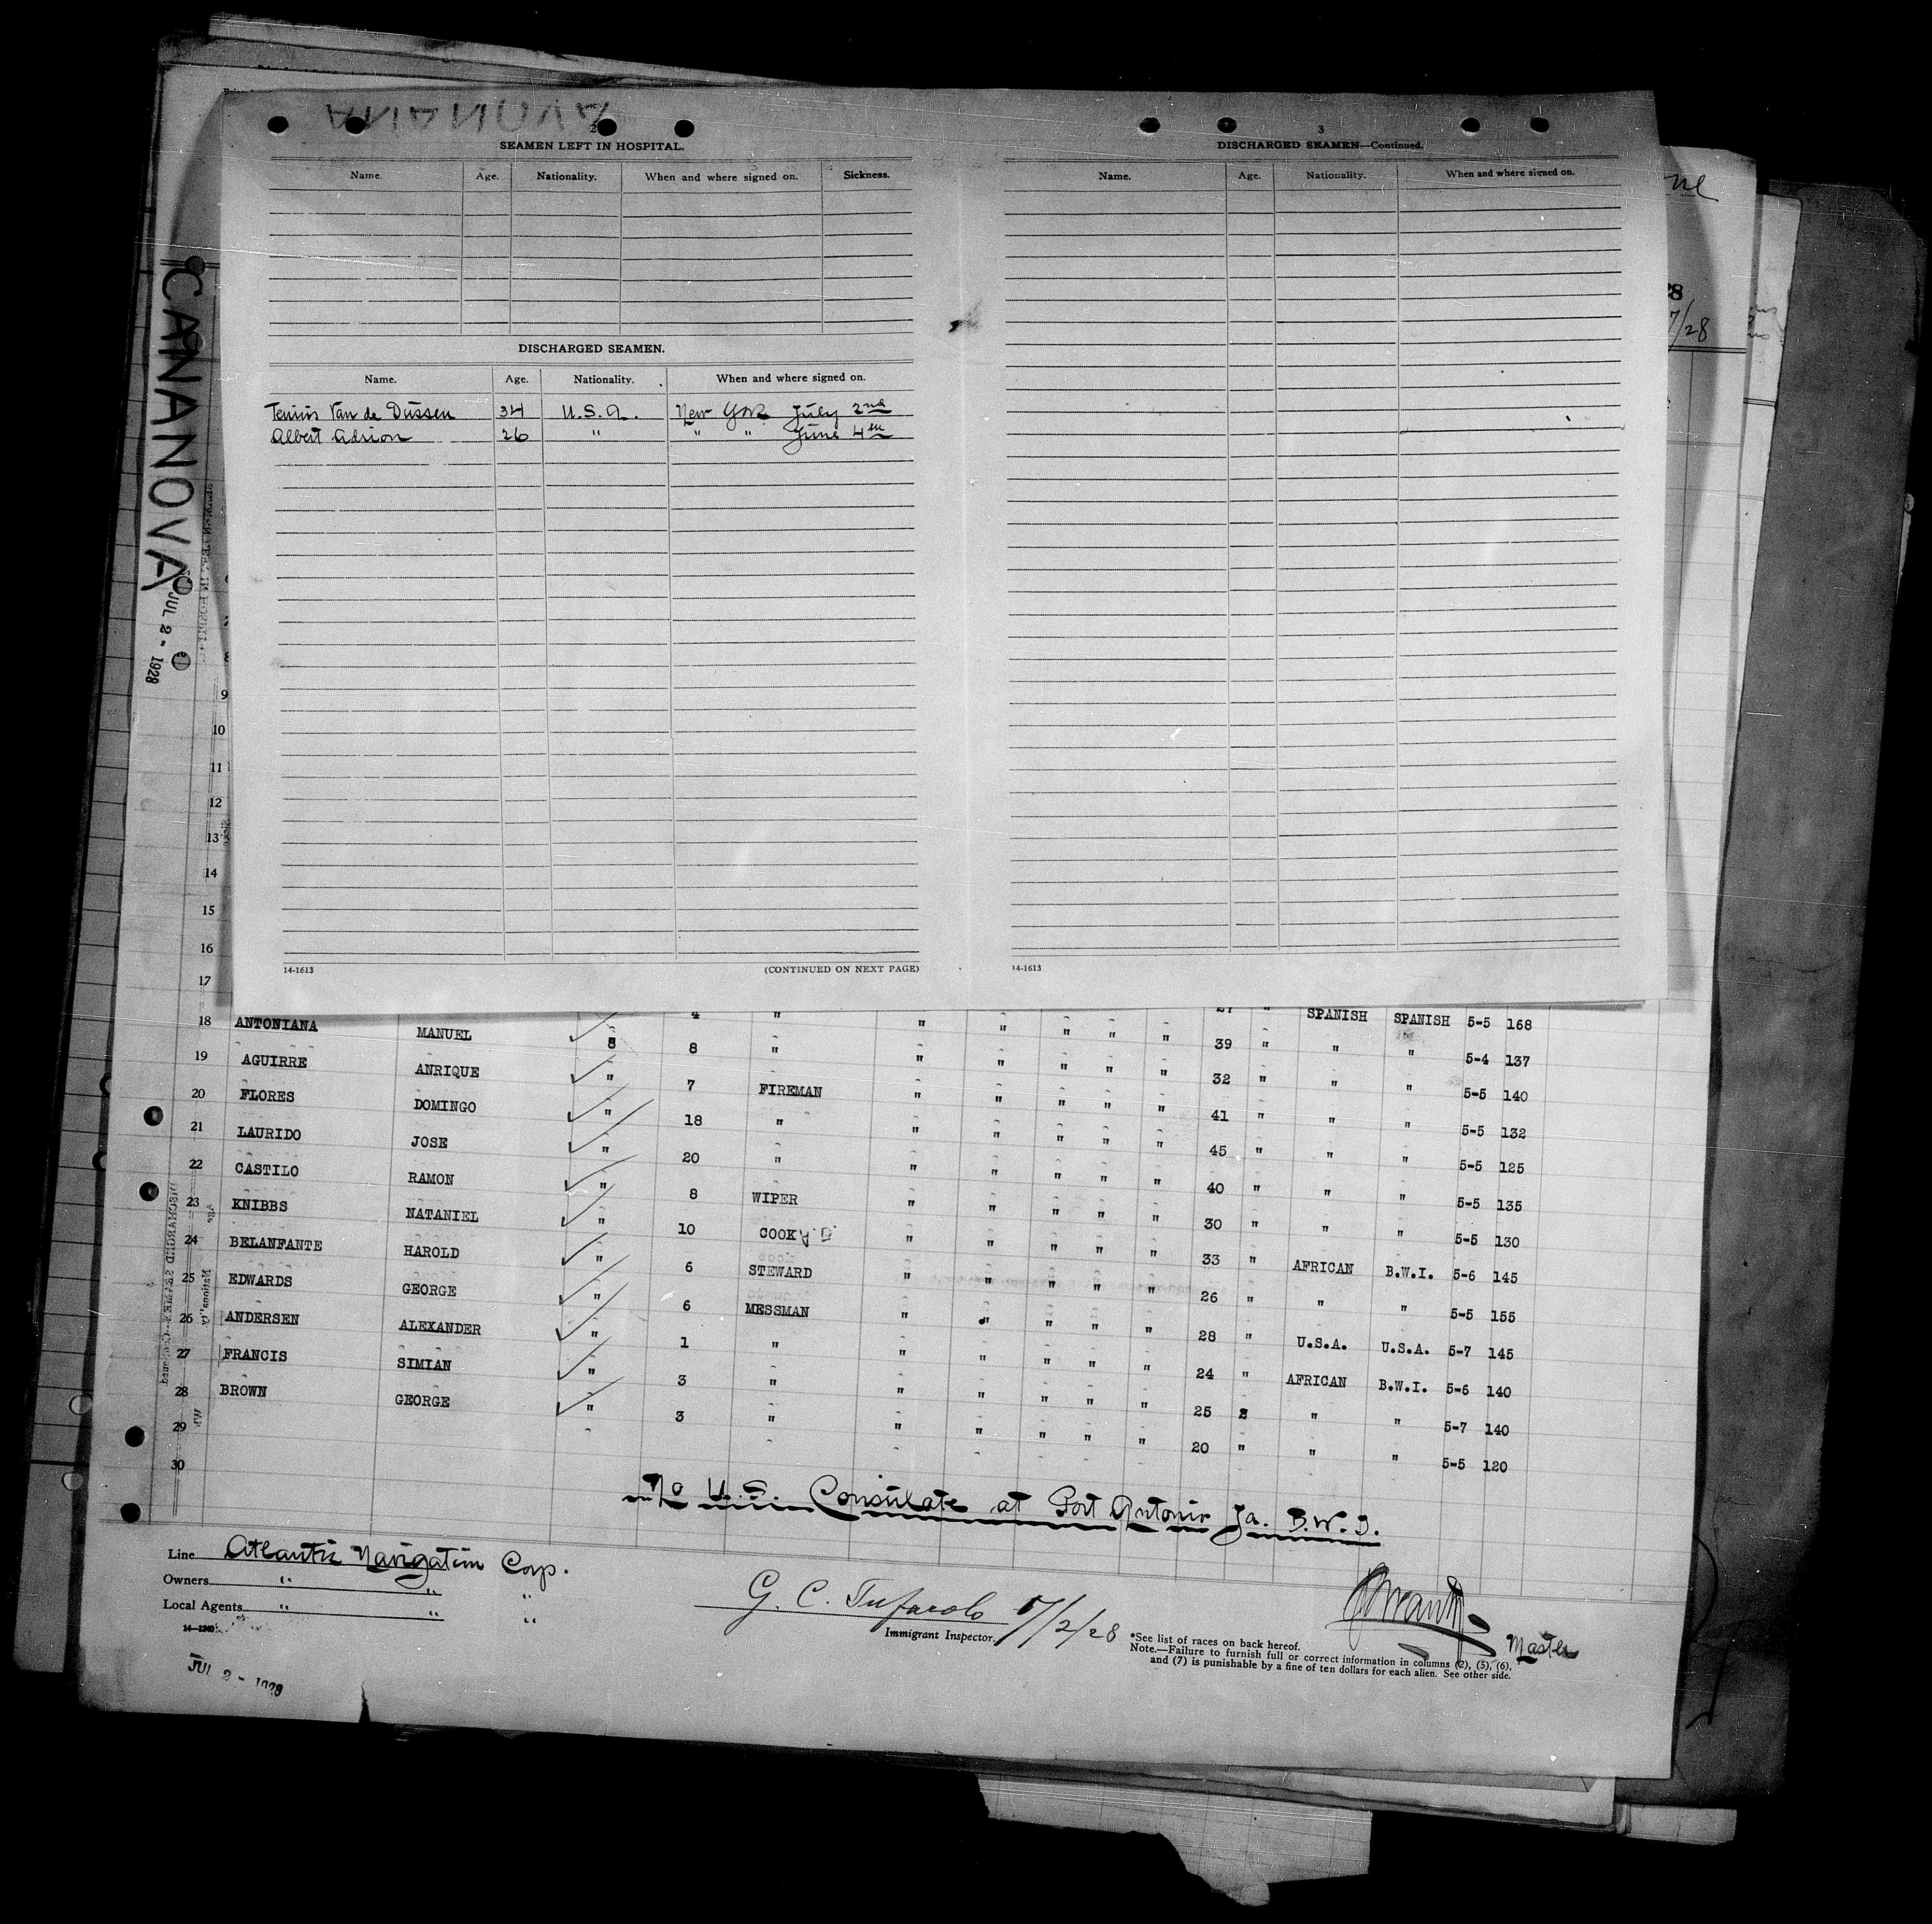 CANANOVA
JUL 2 - 1928
2
SEAMEN LEFT IN HOSPITAL.
Name. Age. Nationality. When and where signed on. Sickness.
DISCHARGED SEAMEN.
Name. Age. Nationality. When and where signed on.
Van de Dussen 34 U.S.A. New York July 2nd
Albert Adrion 26 " " " June 4th
14-1613 (CONTINUED ON NEXT PAGE)
3
DISCHARGED SEAMEN—Continued.
Name. Age. Nationality. When and where signed on.
14-1613
28
7/28
9
10
11
12
13
14
15
16
17
4 " 27 " SPANISH SPANISH 5-5 168
18 ANTONIANA MANUEL 8 8 " " " " " " 39 " " " 5-4 137
19 AGUIRRE ANRIQUE " 7 FIREMAN " " " " " 32 " " " 5-5 140
20 FLORES DOMINGO " 18 " " " " " " 41 " " " 5-5 132
21 LAURIDO JOSE " 20 " " " " " " 45 " " " 5-5 125
22 CASTILO RAMON " 8 WIPER " " " " " 40 " " " 5-5 135
23 KNIBBS NATANIEL " 10 COOK " " " " " 30 " " " 5-5 130
24 BELANFANTE HAROLD " 6 STEWARD " " " " " 33 " AFRICAN B.W.I. 5-6 145
25 EDWARDS GEORGE " 6 MESSMAN " " " " " 26 " " " 5-5 155
26 ANDERSEN ALEXANDER " 1 " " " " " " 28 " U.S.A. U.S.A. 5-7 145
27 FRANCIS SIMIAN " 3 " " " " " " 24 " AFRICAN B.W.I. 5-6 140
28 BROWN GEORGE " 3 " " " " " " 25 " " " 5-7 140
29 20 " " " 5-5 120
30
No U.S. Consulate at Port Antonio Ja. B.W.I.
Line Atlantic Navigation Corp.
Owners " " "
Local Agents " " "
14-1240
G. C. Tufarolo 7/2/28
Immigrant Inspector.
Master
*See list of races on back hereof.
Note.—Failure to furnish full or correct information in columns (2), (5), (6),
and (7) is punishable by a fine of ten dollars for each alien. See other side.
JUL 2 - 1928